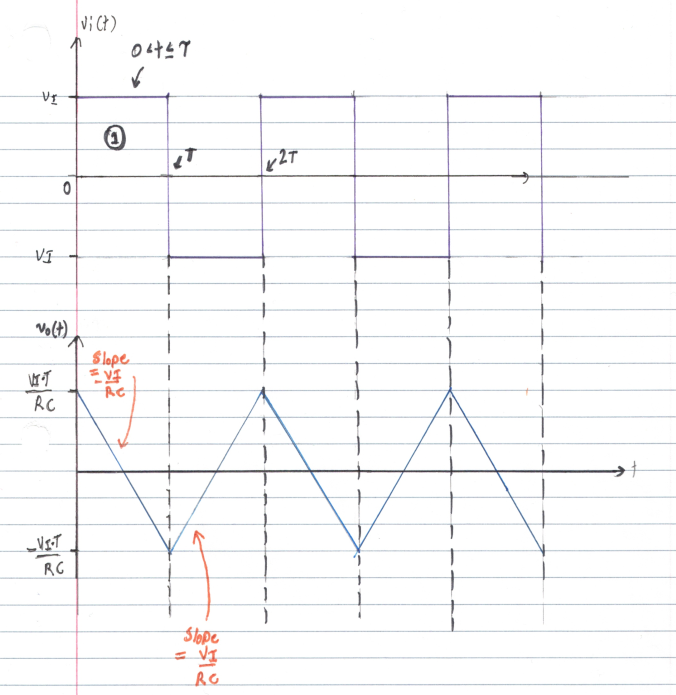 Vi(t)
0<t≤T
VI
①
T
2T
0
VI
vo(t)
Slope
= -VI/RC
VI·T/RC
t
-VI·T/RC
Slope
= VI/RC